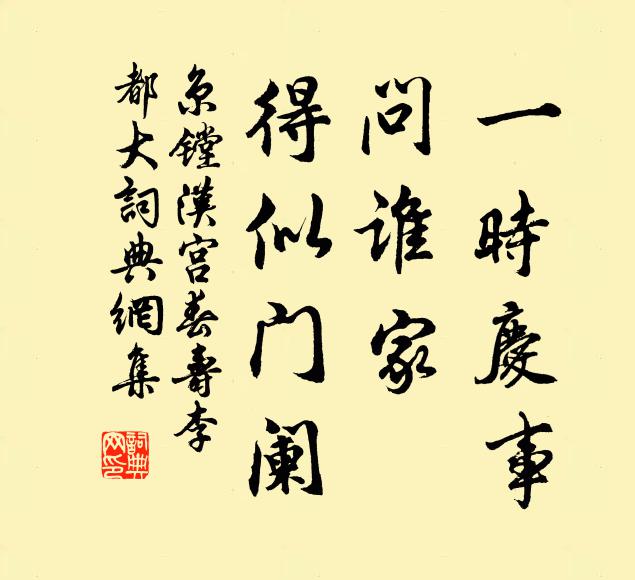 一時慶事
問誰家
得似门阑
京鏜漢宮春壽李
都大詞典網集
詞典網印